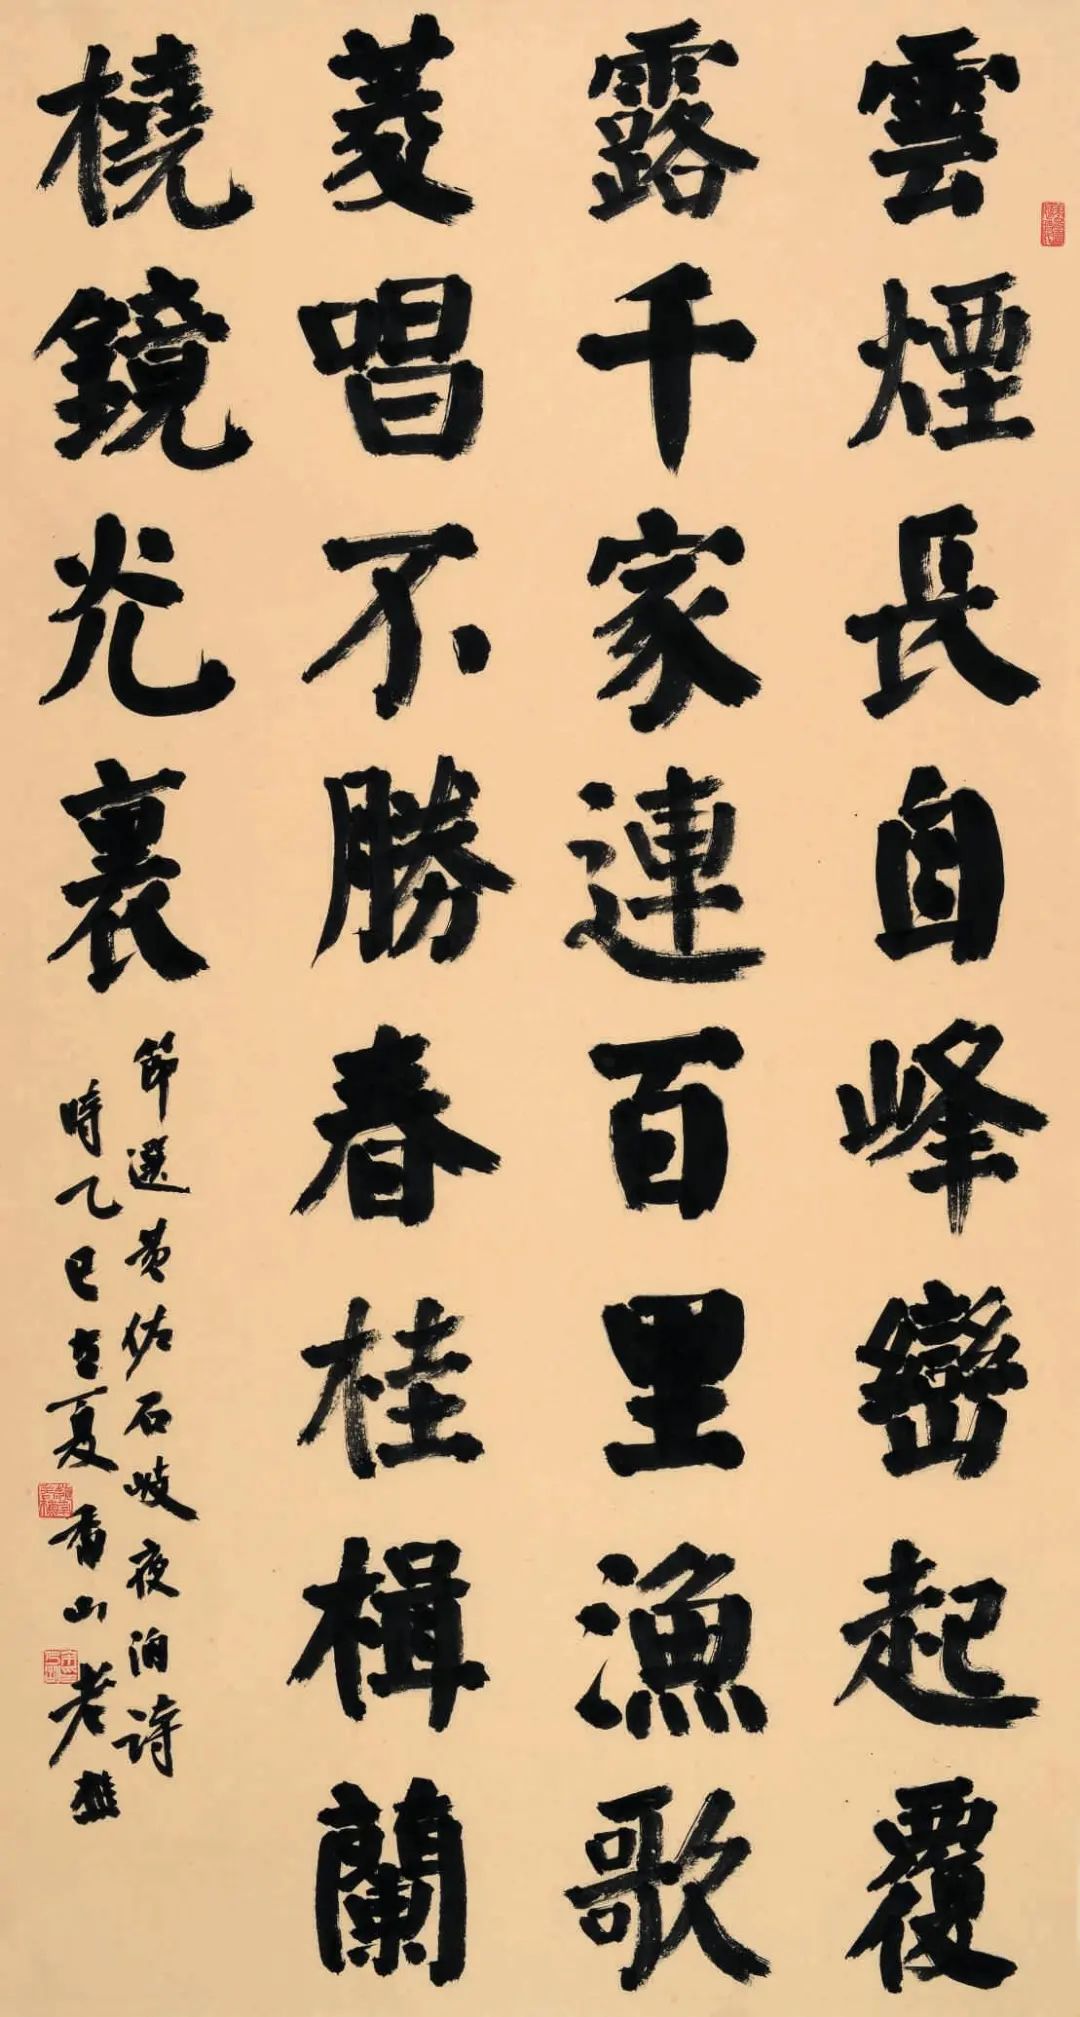 雲煙長自峰巒起覆
露千家連百里漁歌
菱唱不勝春桂楫蘭
橈鏡光裏
節選黃佐石岐夜泊詩
時乙巳立夏香山老